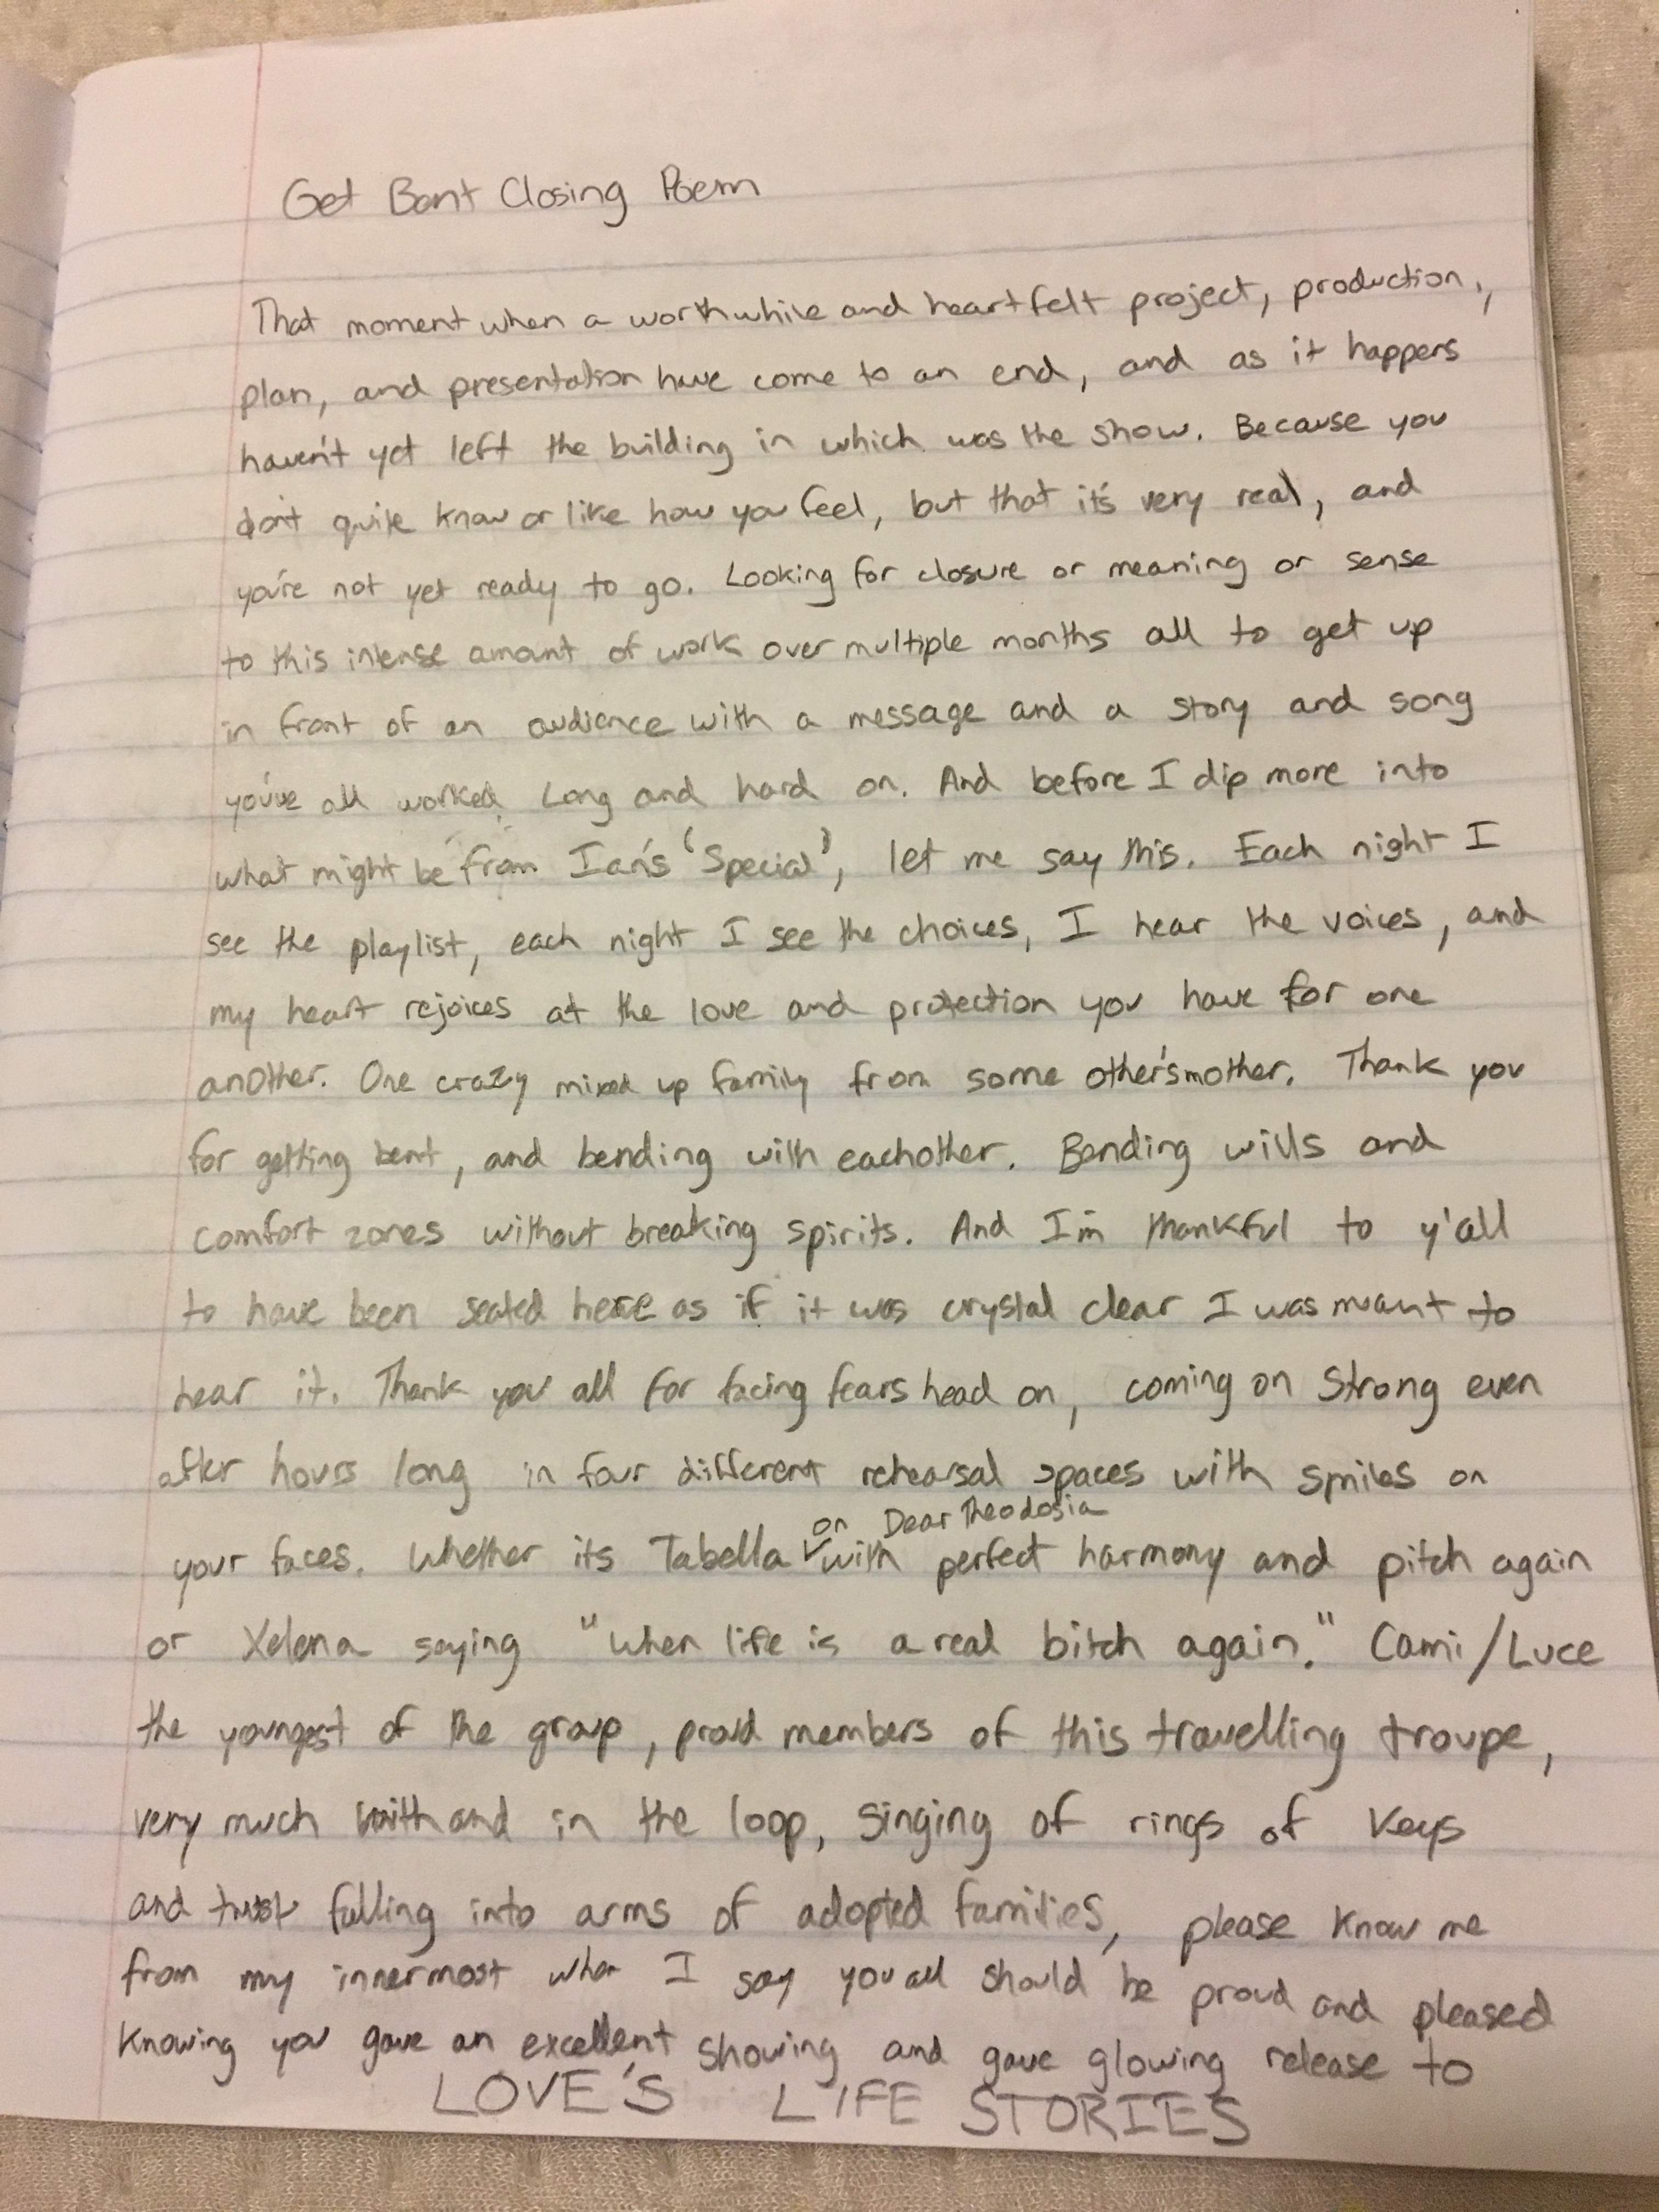 Get Bent Closing Poem
That moment when a worthwhile and heartfelt project, production,
plan, and presentation have come to an end, and as it happens
haven't yet left the building in which was the show. Because you
don't quite know or like how you feel, but that it's very real, and
you're not yet ready to go. Looking for closure or meaning or sense
to this intense amount of work over multiple months all to get up
in front of an audience with a message and a story and song
you've all worked long and hard on. And before I dip more into
what might be from Ian's 'Special', let me say this. Each night I
see the playlist, each night I see the choices, I hear the voices, and
my heart rejoices at the love and protection you have for one
another. One crazy mixed up family from some other'smother. Thank you
for getting bent, and bending with eachother. Bending wills and
comfort zones without breaking spirits. And I'm thankful to y'all
to have been seated here as if it was crystal clear I was meant to
hear it. Thank you all for facing fears head on, coming on strong even
after hours long in four different rehearsal spaces with smiles on
on Dear Theodosia
your faces. Whether its Tabella with perfect harmony and pitch again
or Xelena saying "when life is a real bitch again." Cami/Luce
the youngest of the group, proud members of this travelling troupe,
very much with and in the loop, singing of rings of keys
and trust falling into arms of adopted families, please know me
from my innermost when I say you all should be proud and pleased
knowing you gave an excellent showing and gave glowing release to
LOVE'S LIFE STORIES